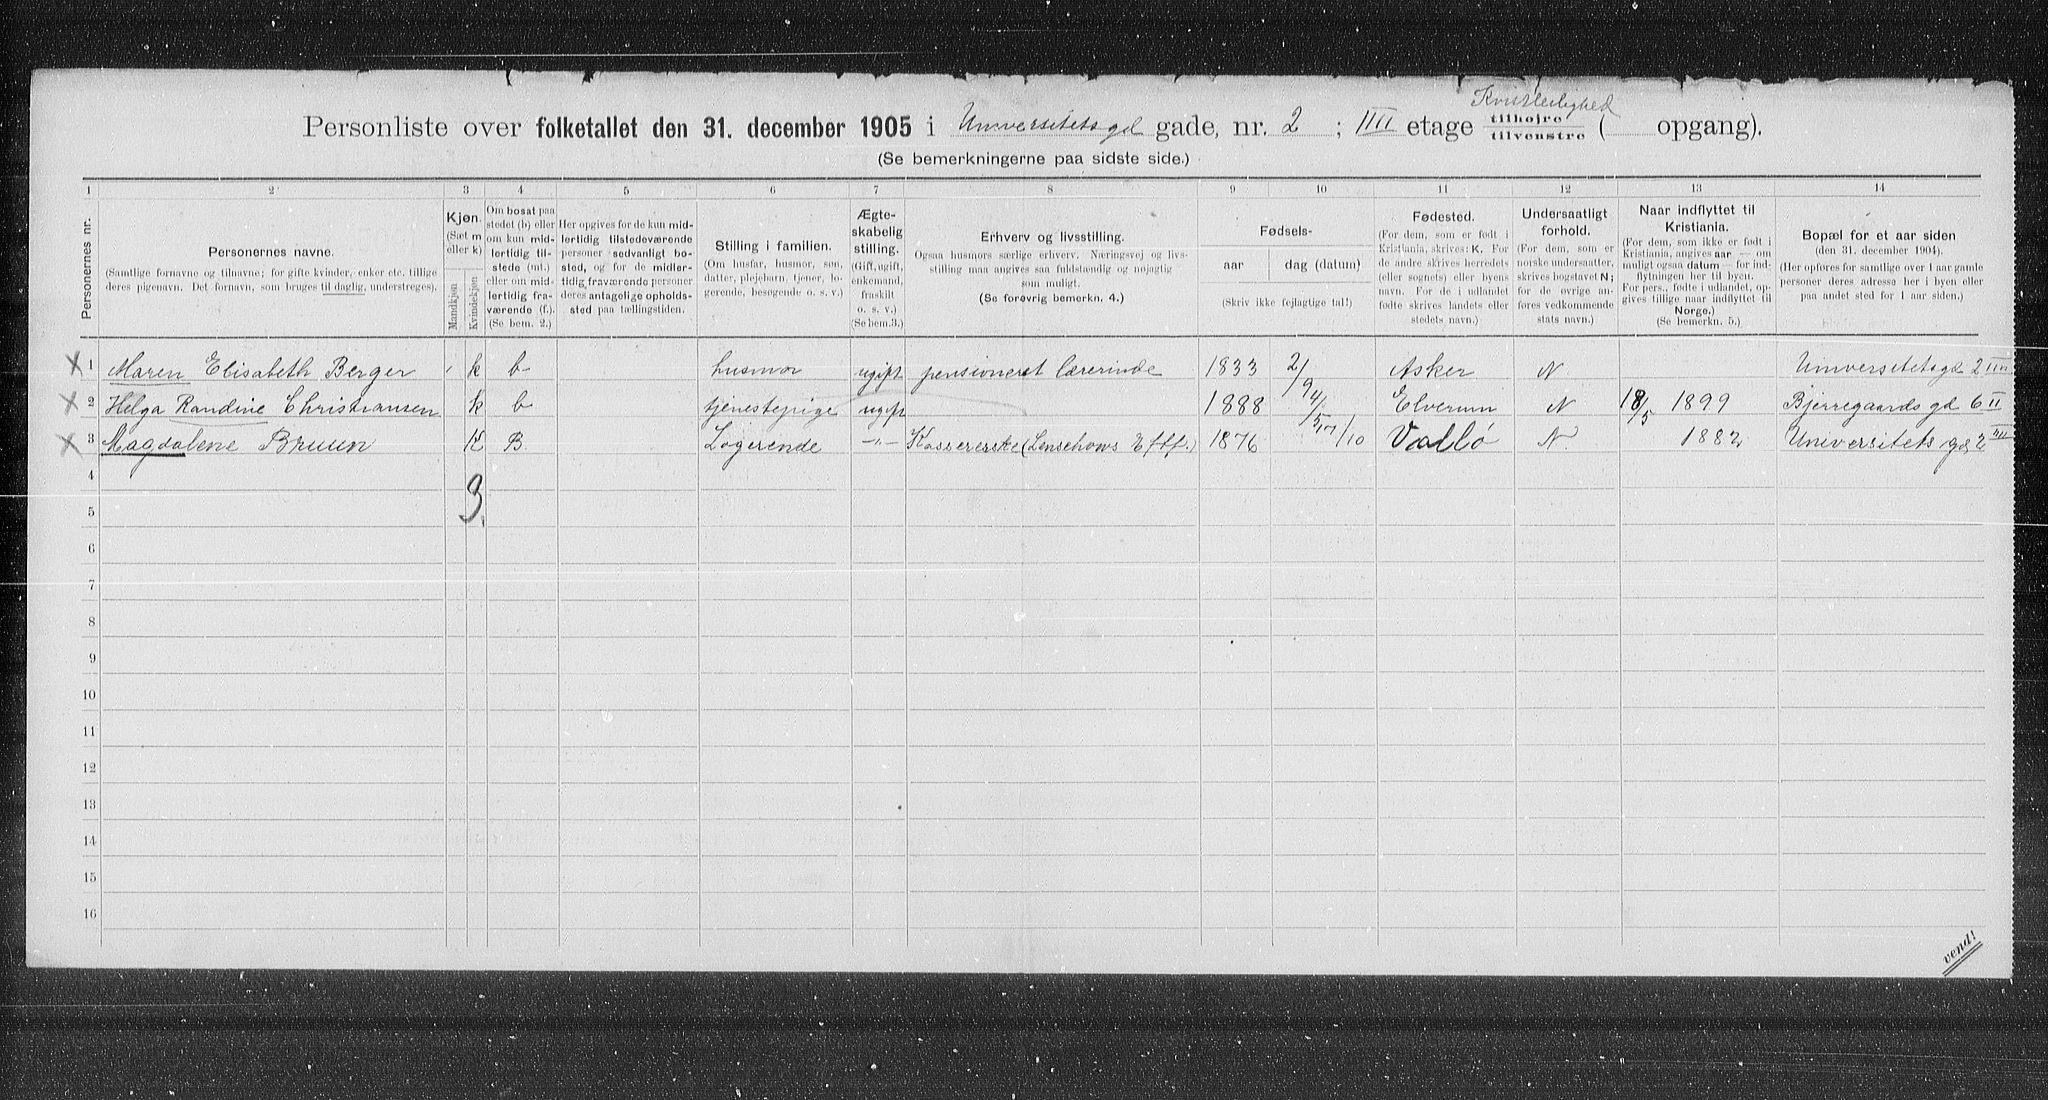 Kvistleilighed
Personliste over folketallet den 31. december 1905 i Universitetsgd gade, nr. 2 ; IIII etage tilhøjre tilvenstre ( opgang).
(Se bemerkningerne paa sidste side.)
1 2 3 4 5 6 7 8 9 10 11 12 13 14
Personernes nr.
Personernes navne.
(Samtlige fornavne og tilnavne; for gifte kvinder, enker etc. tillige
deres pigenavn. Det fornavn, som bruges til daglig, understreges).
Kjøn.
(Sæt m
eller k)
Mandkjøn
Kvindekjøn
Om bosat paa
stedet (b) eller
om kun mid-
lertidig til-
stede (mt.)
eller om mid-
lertidig fra-
værende (f.).
(Se bem. 2.)
Her opgives for de kun mid-
lertidig tilstedeværende
personer sedvanligt bo-
sted, og for de midler-
tidig fraværende personer
deres antagelige opholds-
sted paa tællingstiden.
Stilling i familien.
(Om husfar, husmor, søn,
datter, plejebarn, tjener, lo-
gerende, besøgende o. s. v.)
Ægte-
skabelig
stilling.
(Gift, ugift,
enkemand,
fraskilt
o. s. v.)
(Se bem.3.)
Erhverv og livsstilling.
Ogsaa husmors særlige erhverv. Næringsvej og livs-
stilling maa angives saa fuldstændig og nøjagtig
som muligt.
(Se forøvrig bemerkn. 4.)
Fødsels-
aar
dag (datum)
(Skriv ikke fejlagtige tal!)
Fødested.
(For dem, som er født i
Kristiania, skrives: K. For
de andre skrives herredets
(eller sognets) eller byens
navn. For de i udlandet
fødte skrives landets eller
stedets navn.)
Undersaatligt
forhold.
(For dem, som er
norske undersaatter,
skrives bogstavet N;
for de øvrige an-
føres vedkommende
stats navn.)
Naar indflyttet til
Kristiania.
(For dem, som ikke er født i
Kristiania, angives aar — om
muligt ogsaa datum — for ind-
flytningen her til byen.
For pers., fødte i udlandet, op-
gives tillige naar indflyttet til
Norge.)
(Se bemerkn. 5.)
Bopæl for et aar siden
(den 31. december 1904).
(Her opføres for samtlige over 1 aar gamle
personer deres adresse her i byen eller
paa andet sted for 1 aar siden.)
X 1 Maren Elisabeth Berger k b husmor ugift pensioneret lærerinde 1833 2/9 Asker N Universitetsgd 2 IIII
X 2 Helga Randine Christiansen k b tjenestepige ugift 1888 4/5 Elverum N 18/5 1899 Bjerregaards gd 6 II
X 3 Magdalene Bruun K B. Logerende —"— Kassererske (Lensehows Eftf.) 1876 17/10 Vallø N. 1882 Universitets gd 2 IIII
4
3.
5
6
7
8
9
10
11
12
13
14
15
16
vend!